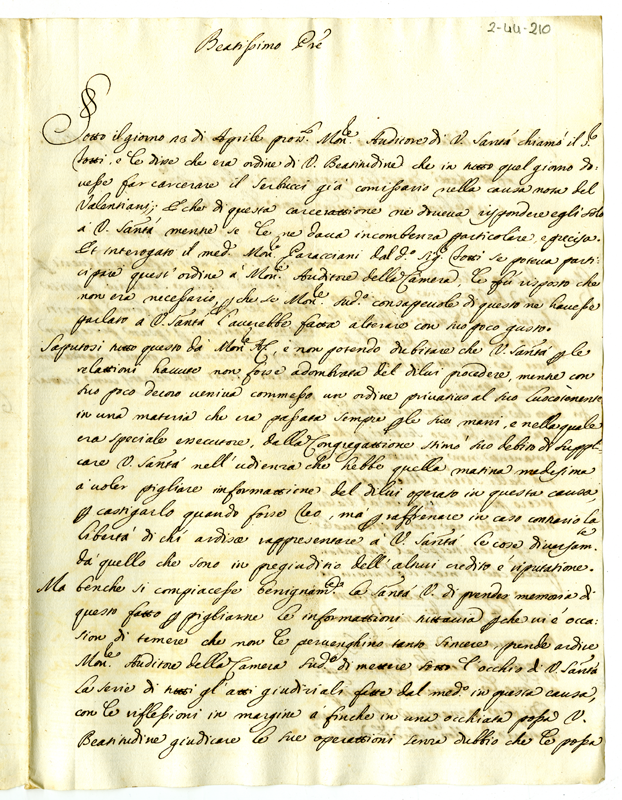 2-44-210
Beatissimo Pre
Sotto il giorno 23 di Aprile pros. Mon.re Auditore di V. Santà chiamò il S.r
Totti, e le disse che era ordine di V. Beatitudine che in tutto quel giorno do-
vesse far carcerare il Serbucci già comissario nella causa nota del
Valentiani; et che di questa carcerattione ne doveva rispondere egli solo
à V. Santà mentre se le ne dava incombenza particolare, e precisa.
Et interogato il med.o Mon.re Paracciani dal d.o Sig.r Totti se poteva parti-
cipare quest'ordine à Mon.re Auditore della Camera, le fù risposto che
non era necessario, che se Mon.re Sud.o consapevole di questo ne havesse
parlato à V. Santà l'averebbe fatta alterare con suo poco gusto.
Saputosi tutto questo da Mon.re, e non potendo dubitare che V. Santà p le
relattioni havute non fosse adombrata del dilui procedere, mentre con
suo poco decoro veniva commesso un ordine privativo al suo Luocotenente
in una materia che era passata sempre p le sue mani, e nella quale
era speciale essecutore, della Congregattione stimò suo debito di suppli-
care V. Santà nell'udienza che hebbe quella matina medesima
à voler pigliare informattione del dilui operato in questa causa
p castigarlo quando fosse reo, mà p raffrenare in caso contrario la
libertà di chi ardisce rappresentare à V. Santà le cose diversam.te
da quello che sono in pregiuditio dell'altrui credito e riputatione.
Ma benche si compiacesse benignam.te la Santà V. di prender memoria di
questo fatto p pigliarne le informattioni tuttavia p che vi è occa-
sion di temere che non le pervenghino tanto sincere, prende ardire
Mon.re Auditore della Camera Sud.o di mettere sotto l'occhio di V. Santà
la serie di tutti gl'atti giudiziali fatte dal med.o in questa causa,
con le riflessioni in margine à finche in una occhiata possa V.
Beatitudine giudicare le sue operattioni senza dubbio che le possa